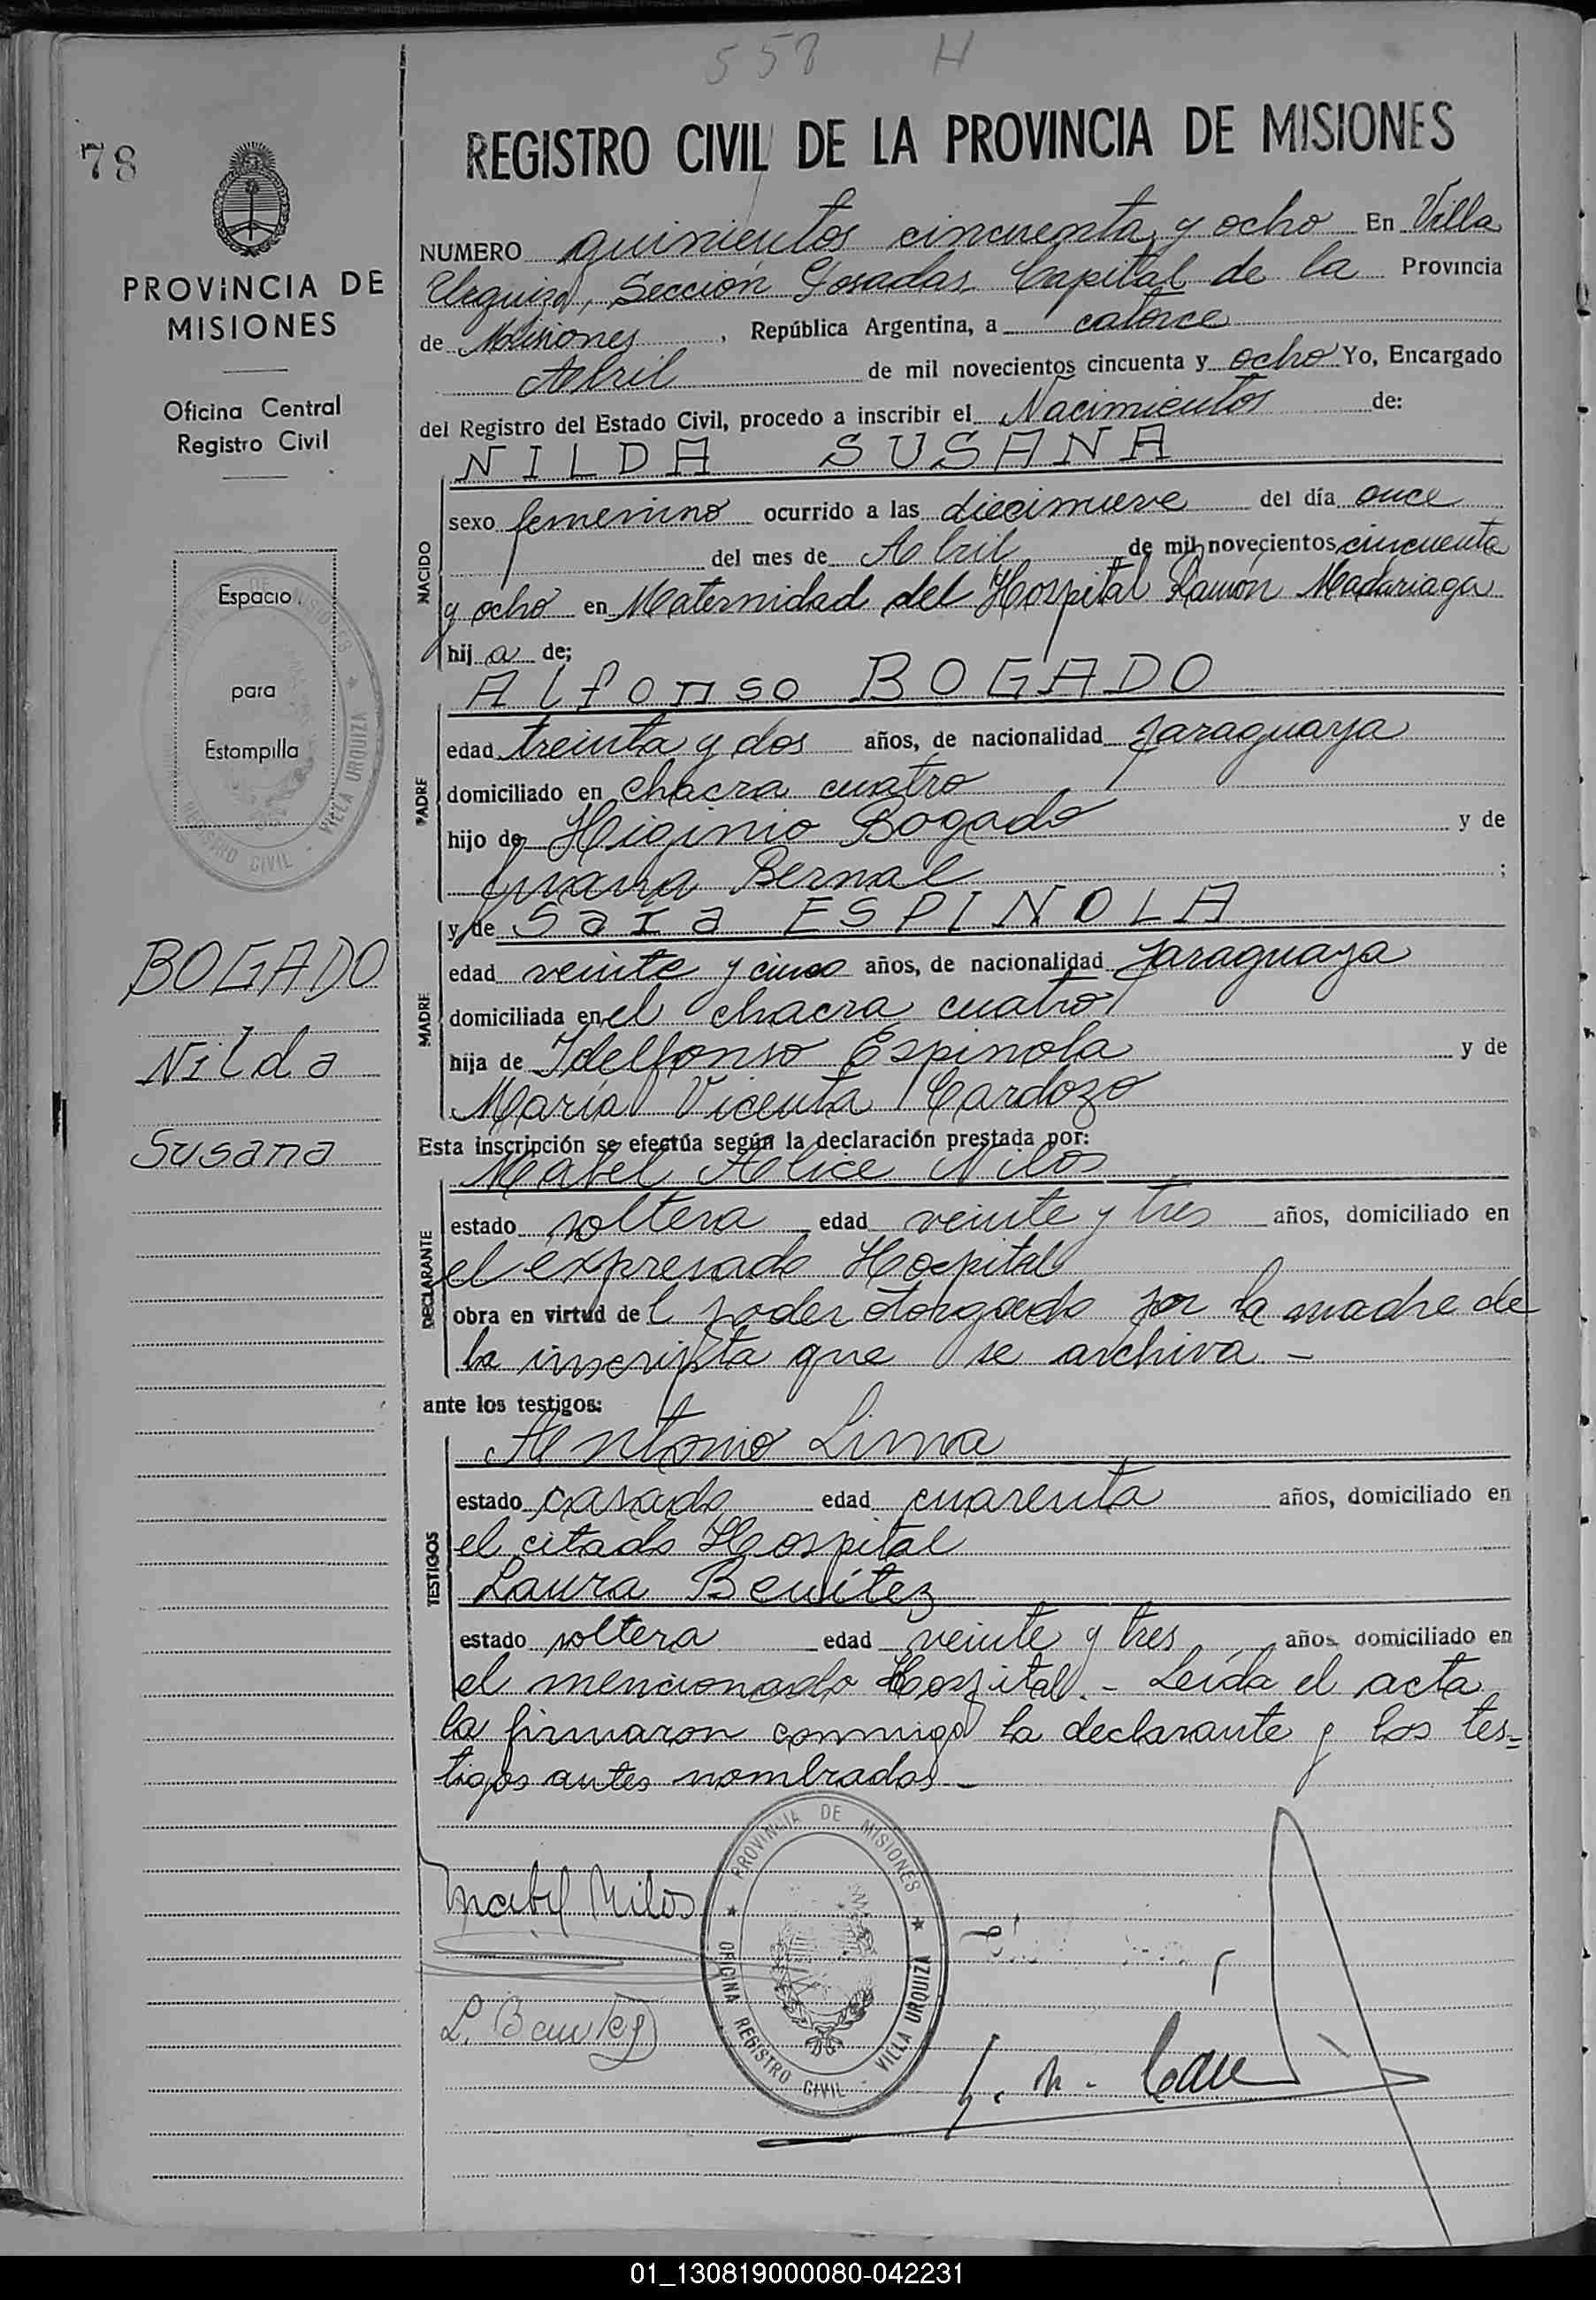 558 H
78
REGISTRO CIVIL DE LA PROVINCIA DE MISIONES
PROVINCIA DE
MISIONES
Oficina Central
Registro Civil
Espacio
para
Estampilla
REGISTRO CIVIL - VILLA URQUIZA
BOGADO
Nilda
Susana
NUMERO quinientos cincuenta y ocho En Villa
Urquiza, Sección Posadas Capital de la Provincia
de Misiones, República Argentina, a catorce
Abril de mil novecientos cincuenta y ocho Yo, Encargado
del Registro del Estado Civil, procedo a inscribir el Nacimientos de:
NILDA SUSANA
NACIDO
sexo femenino ocurrido a las diecinueve del día once
del mes de Abril de mil novecientos cincuenta
y ocho en Maternidad del Hospital Ramón Madariaga
hij a de;
Alfonso BOGADO
PADRE
edad treinta y dos años, de nacionalidad paraguaya
domiciliado en chacra cuatro
hijo de Higinio Bogado y de
Juana Bernal ;
y de Sara ESPINOLA
MADRE
edad veinte y cinco años, de nacionalidad paraguaya
domiciliada en el chacra cuatro
hija de Idelfonso Espinola y de
María Vicenta Cardozo
Esta inscripción se efectúa según la declaración prestada por:
Mabel Alice Nilos
DECLARANTE
estado soltera edad veinte y tres años, domiciliado en
el expresado Hospital
obra en virtud de l poder otorgado por la madre de
la inscripta que se archiva -
ante los testigos:
Antonio Lima
TESTIGOS
estado casado edad cuarenta años, domiciliado en
el citado Hospital
Laura Benítez
estado soltera edad veinte y tres años domiciliado en
el mencionado Hospital. - Leída el acta
la firmaron conmigo la declarante y los tes=
tigos antes nombrados -
Mabel Nilos
L. Benitez
PROVINCIA DE MISIONES
OFICINA REGISTRO CIVIL - VILLA URQUIZA
01_130819000080-042231